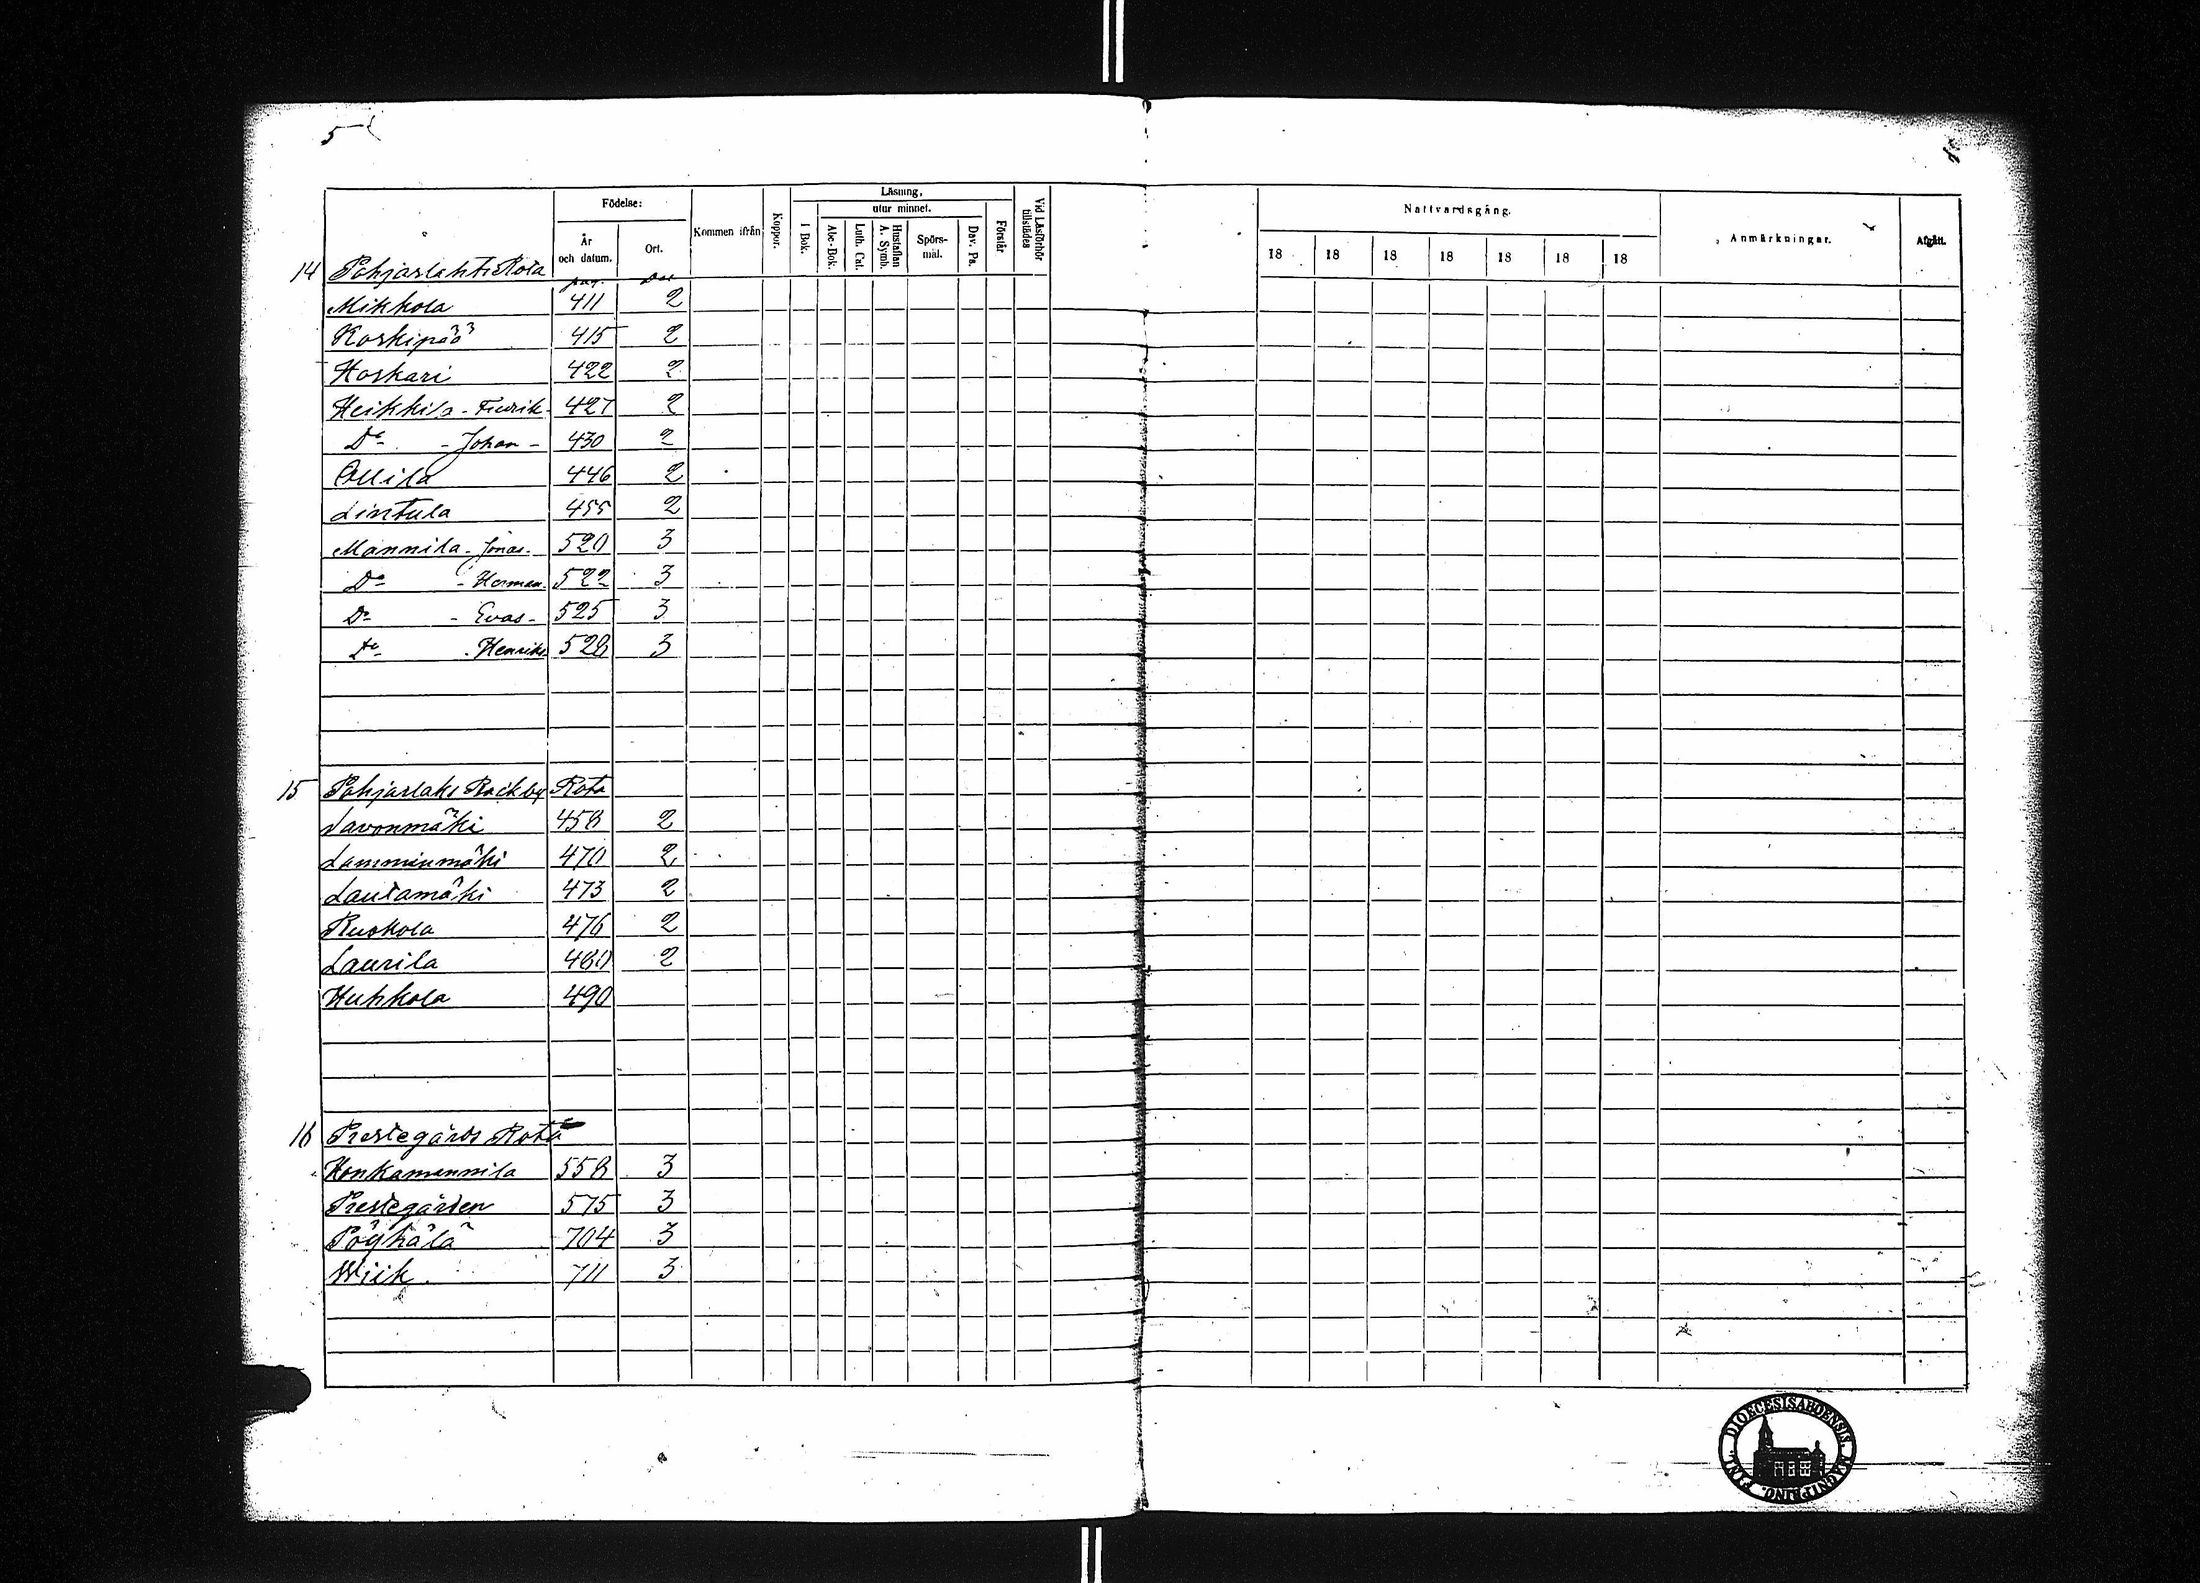 5
Födelse:
År
och datum.
Ort.
Kommen ifrån
Koppor.
Läsning,
utur minnet.
I Bok.
Abc-Bok.
Luth. Cat.
Hustaflan
A. Symb.
Spörs-
mål.
Dav. Ps.
Förstår
Vid Läsförhör
tillstädes
Nattvardsgång.
18 18 18 18 18 18 18
Anmärkningar.
Afgått.
14 Pohjaslahti Rota pag. Del
Mikkola 411 2
Koskipää 415 2
Hoskari 422 2
Heikkila - Fredrik - 427 2
Do - Johan - 430 2
Ollila 446 2
Lintula 455 2
Mannila - Jonas - 520 3
Do - Herman - 522 3
Do - Evas - 525 3
Do - Henriks 528 3
15 Pohjaslaks Backby Rota
Savonmäki 458 2
Lamminmäki 470 2
Lautamäki 473 2
Ruokola 476 2
Laurila 480 2
Huhkola 490
16 Prestegårds Rota
Honkamannila 558 3
Prestegården 575 3
Pöyhälä 704 3
Wiik 711 3